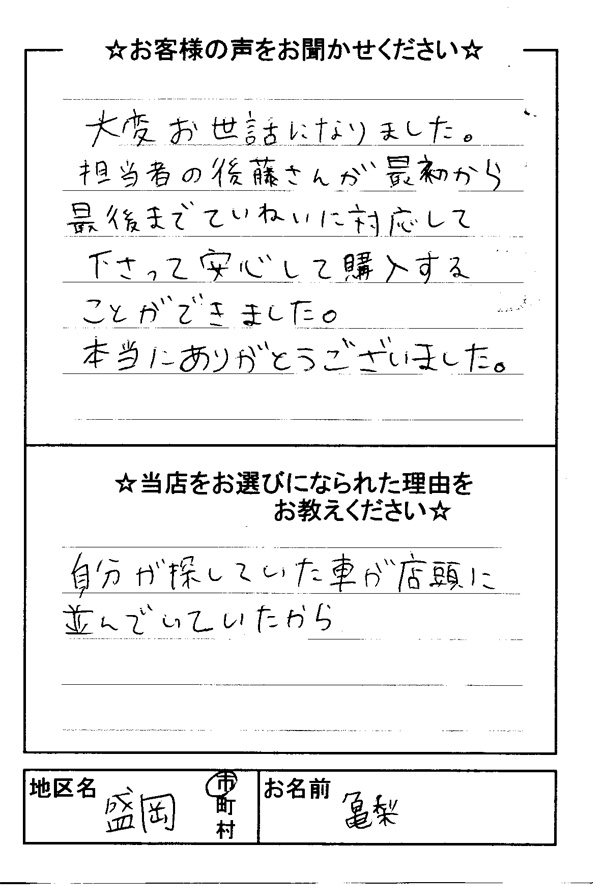 ☆お客様の声をお聞かせください☆
大変お世話になりました。
担当者の後藤さんが最初から
最後までていねいに対応して
下さって安心して購入する
ことができました。
本当にありがとうございました。
☆当店をお選びになられた理由を
お教えください☆
自分が探していた車が店頭に
並んでいていたから
地区名 盛岡 市町村
お名前 亀梨